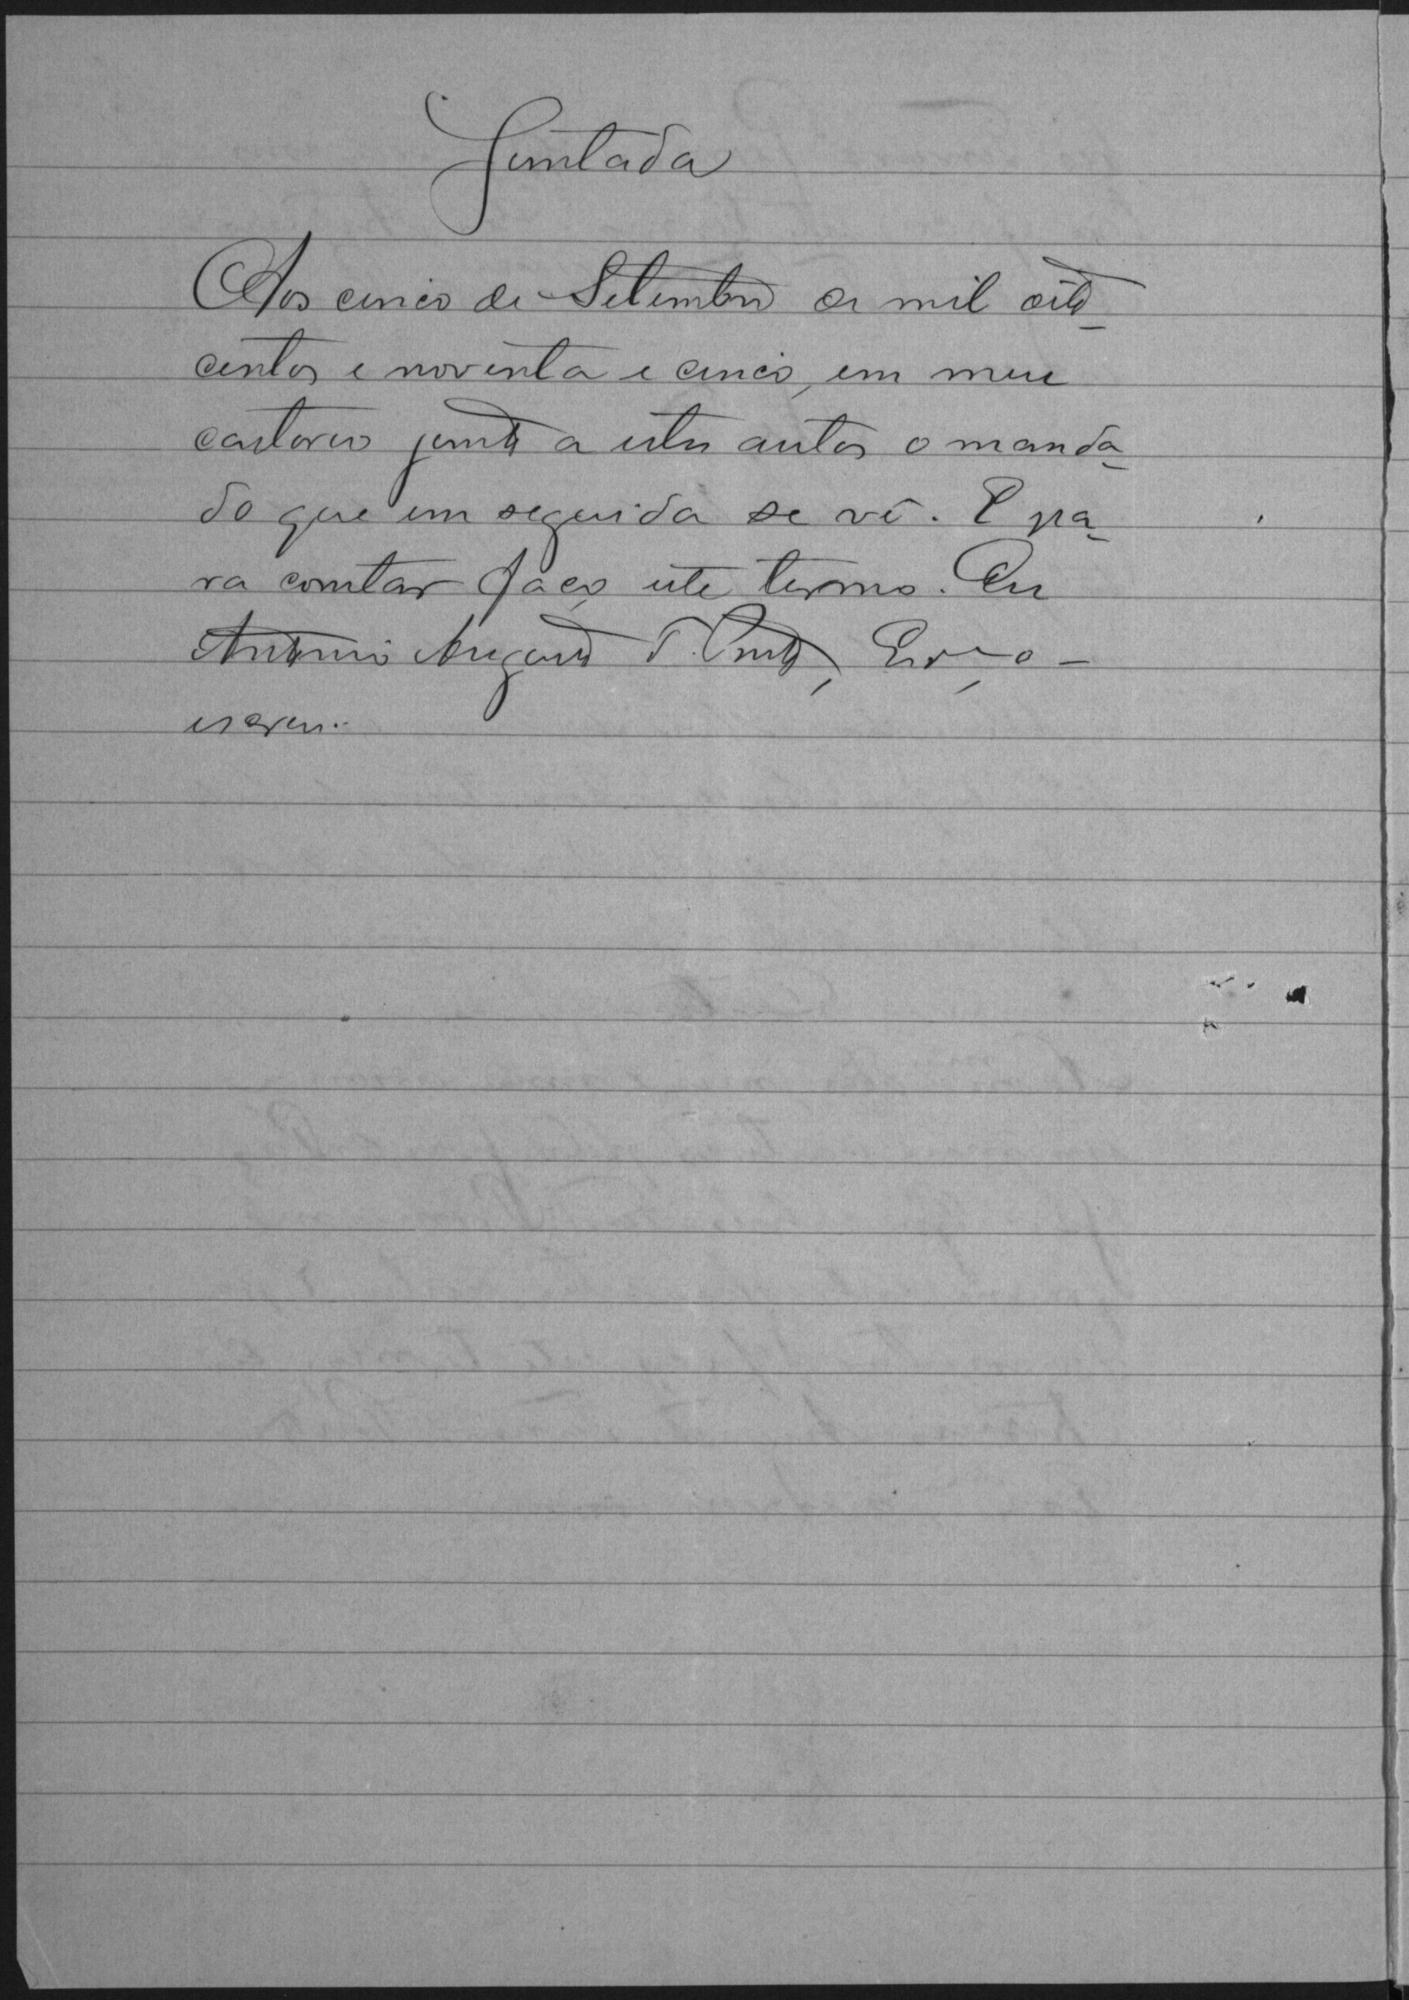 Juntada
Aos cinco de Setembro de mil oito-
centos e noventa e cinco, em meu
cartorio junto a estes autos o manda-
do que em seguida se vê. E pa-
ra constar faço este termo. Eu
Antonio Augusto
escrevi.